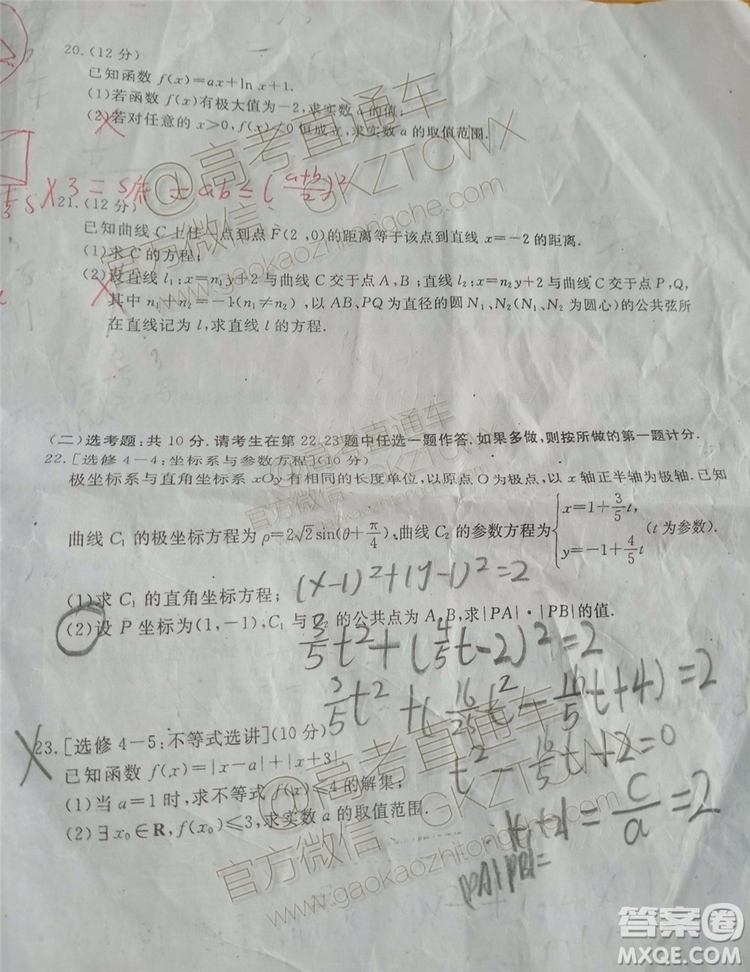 20.(12分)
已知函数 f(x)=ax+ln x+1.
(1)若函数 f(x)有极大值为-2,求实数 a 的值;
(2)若对任意的 x>0,f(x) 0 恒成立,求实数 a 的取值范围.
3=S = =ab≤(a+b/2)²
21.(12分)
已知曲线 C 上任 点到点 F(2,0)的距离等于该点到直线 x=-2 的距离.
(1)求 C 的方程;
(2)设直线 l₁:x=n₁y+2 与曲线 C 交于点 A,B;直线 l₂:x=n₂y+2 与曲线 C 交于点 P,Q,
其中 n₁+n₂=-1(n₁≠n₂),以 AB、PQ 为直径的圆 N₁、N₂(N₁、N₂ 为圆心)的公共弦所
在直线记为 l,求直线 l 的方程.
(二)选考题:共 10 分.请考生在第 22,23 题中任选一题作答.如果多做,则按所做的第一题计分.
22.[选修 4-4:坐标系与参数方程](10 分)
极坐标系与直角坐标系 xOy 有相同的长度单位,以原点 O 为极点,以 x 轴正半轴为极轴.已知
曲线 C₁ 的极坐标方程为 ρ=2√2sin(θ+π/4),曲线 C₂ 的参数方程为{x=1+3/5t, y=-1+4/5t (t 为参数).
(1)求 C₁ 的直角坐标方程;
(x-1)²+(y-1)²=2
(2)设 P 坐标为(1,-1),C₁ 与 C₂ 的公共点为 A,B,求|PA|·|PB|的值.
3/5t²+(4/5t-2)²=2
3/5t²+(16/25t²-16/5t+4)=2
23.[选修 4-5:不等式选讲](10 分)
t²-16/5t+2=0
已知函数 f(x)=|x-a|+|x+3|.
(1)当 a=1 时,求不等式 f(x)≤4 的解集;
=c/a=2
(2)∃x₀∈R,f(x₀)≤3,求实数 a 的取值范围.
|PA||PB|=
@高考直通车
官方微信:GKZTCWX
www.gaokaozhitongche.com
@高考直通车
官方微信:GKZTCWX
www.gaokaozhitongche.com
答案圈
MXQE.COM